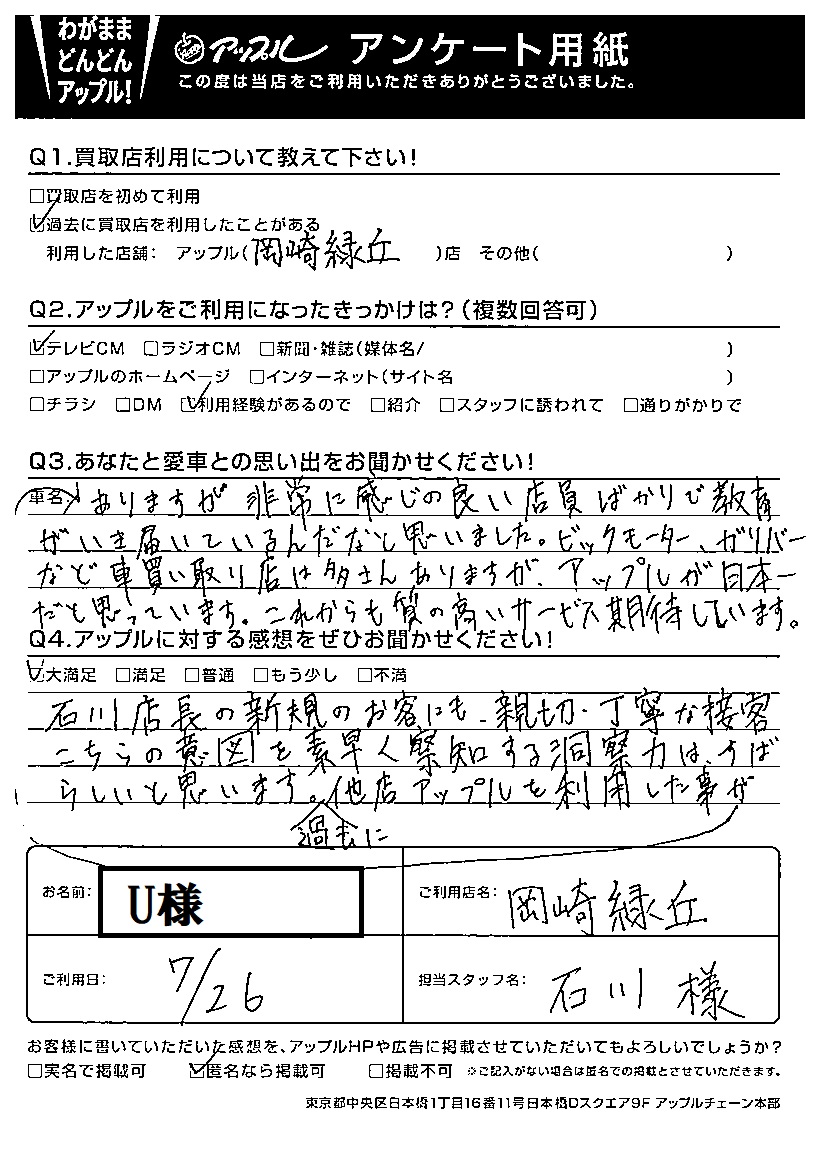 わがまま
どんどん
アップル!
アップル アンケート用紙
この度は当店をご利用いただきありがとうございました。
Q1.買取店利用について教えて下さい!
□買取店を初めて利用
☑過去に買取店を利用したことがある
利用した店舗: アップル(岡崎緑丘 )店 その他( )
Q2.アップルをご利用になったきっかけは?(複数回答可)
☑テレビCM □ラジオCM □新聞・雑誌(媒体名/ )
□アップルのホームページ □インターネット(サイト名 )
□チラシ □DM ☑利用経験があるので □紹介 □スタッフに誘われて □通りがかりで
Q3.あなたと愛車との思い出をお聞かせください!
車名: ありますが 非常に感じの良い店員ばかりで教育
がいき届いているんだなと思いました。ビックモーター、ガリバー
など車買い取り店は多さんありますが、アップルが日本一
だと思っています。これからも質の高いサービス期待しています。
Q4.アップルに対する感想をぜひお聞かせください!
☑大満足 □満足 □普通 □もう少し □不満
石川店長の新規のお客にも、親切・丁寧な接客
こちらの意図を素早く察知する洞察力は、すば
らしいと思います。他店アップルを利用した事が
過去に
お名前: U様
ご利用店名: 岡崎緑丘
ご利用日: 7/26
担当スタッフ名: 石川 様
お客様に書いていただいた感想を、アップルHPや広告に掲載させていただいてもよろしいでしょうか?
□実名で掲載可 ☑匿名なら掲載可 □掲載不可 ※ご記入がない場合は匿名での掲載とさせていただきます。
東京都中央区日本橋1丁目16番11号日本橋Dスクエア9F アップルチェーン本部